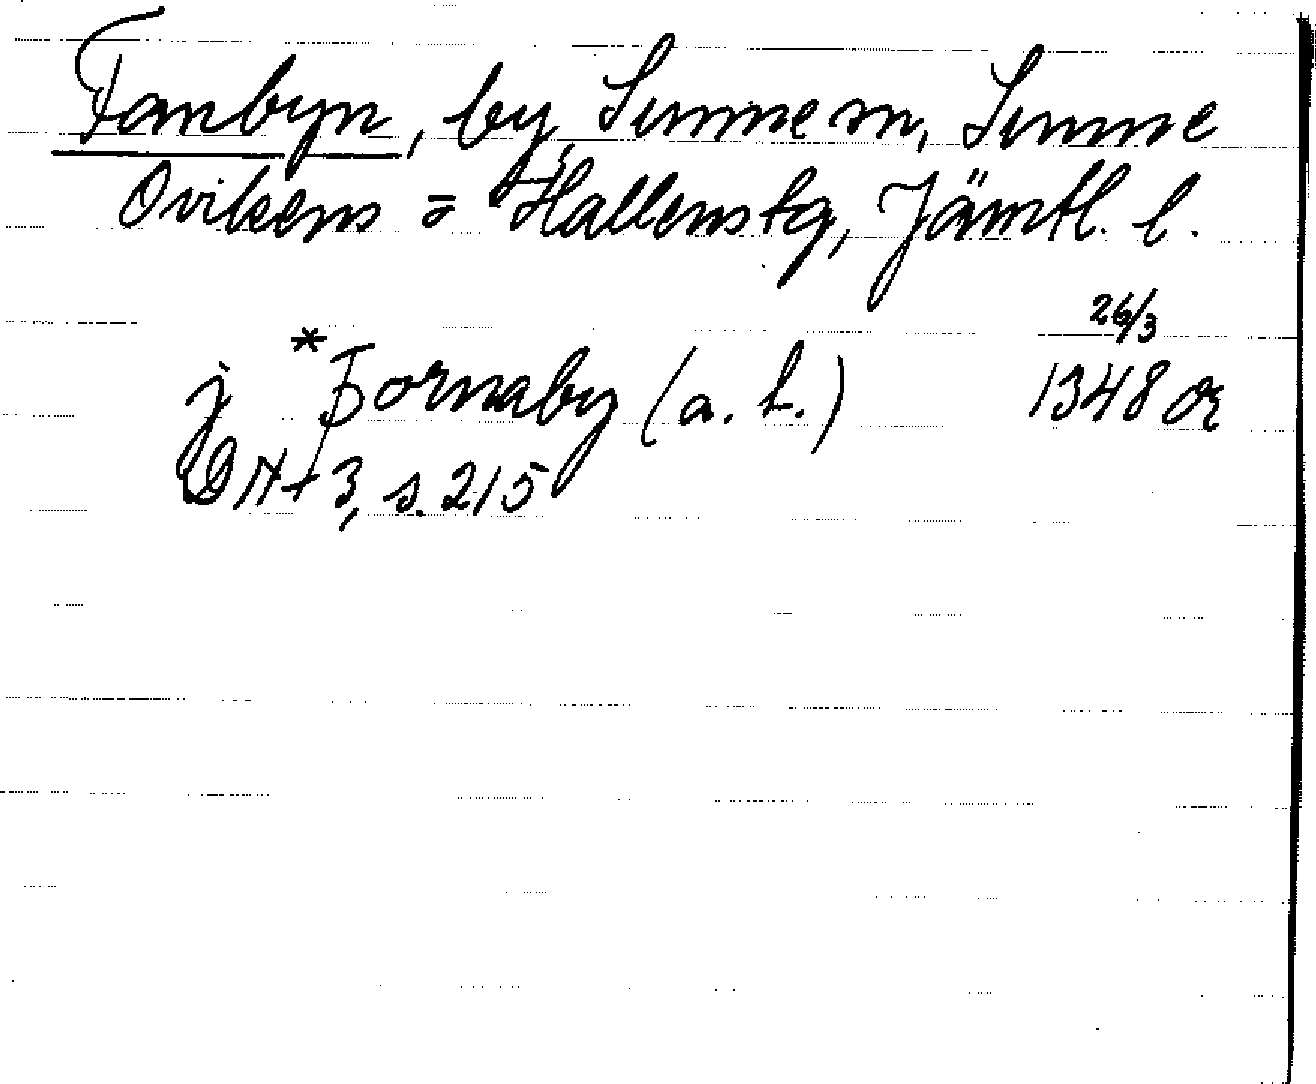 Fanbyn, by, Sunne sn, Sunne
Ovikens = Hallens tg, Jämtl. l.
26/3
j *Fornaby (a. 1348 or
3, s. 215